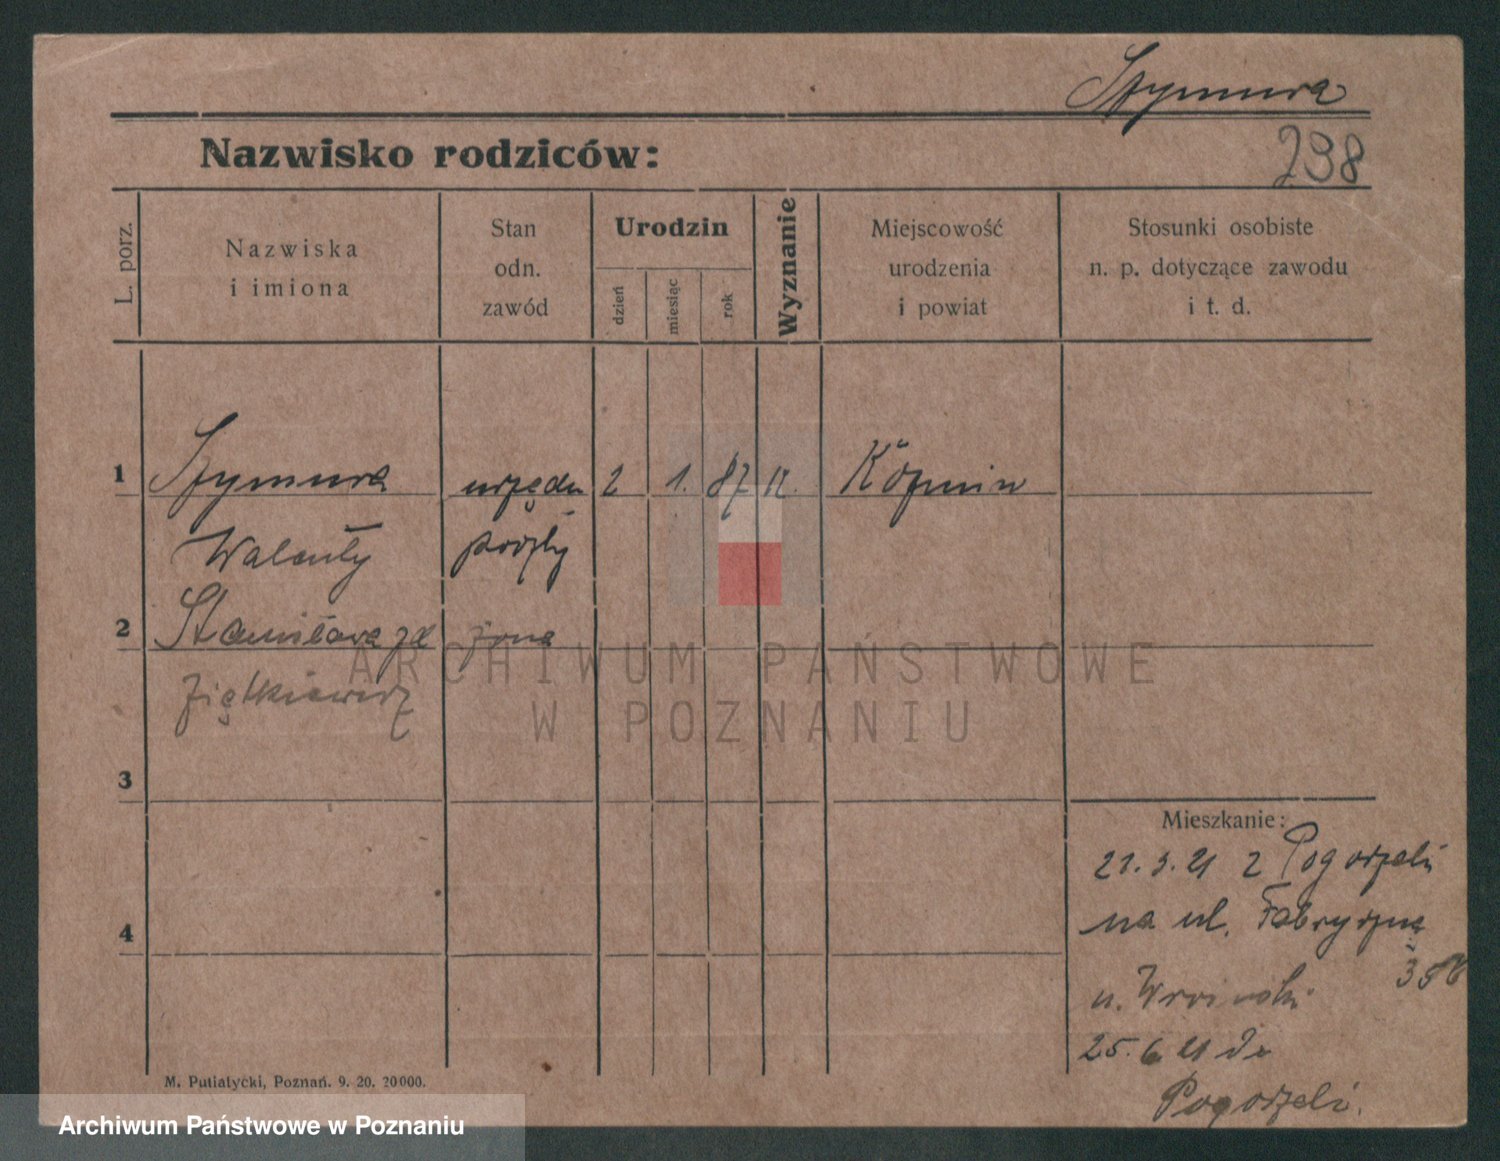 Szymura
Nazwisko rodziców:
238
L. porz.
Nazwiska
i imiona
Stan
odn.
zawód
Urodzin
dzień
miesiąc
rok
Wyznanie
Miejscowość
urodzenia
i powiat
Stosunki osobiste
n. p. dotyczące zawodu
i t. d.
1 Szymura urzędn 2 1. 87 Koźmin
Walenty poczty
2 Stanisława zd żona
Ziętkiewicz
3
4
Mieszkanie:
21.3.21 z Pogorzeli
na ul. Fabryczną
u.
25.6 21 do
Pogorzeli.
M. Putiatycki, Poznań. 9. 20. 20000.
ARCHIWUM PAŃSTWOWE
W POZNANIU
Archiwum Państwowe w Poznaniu